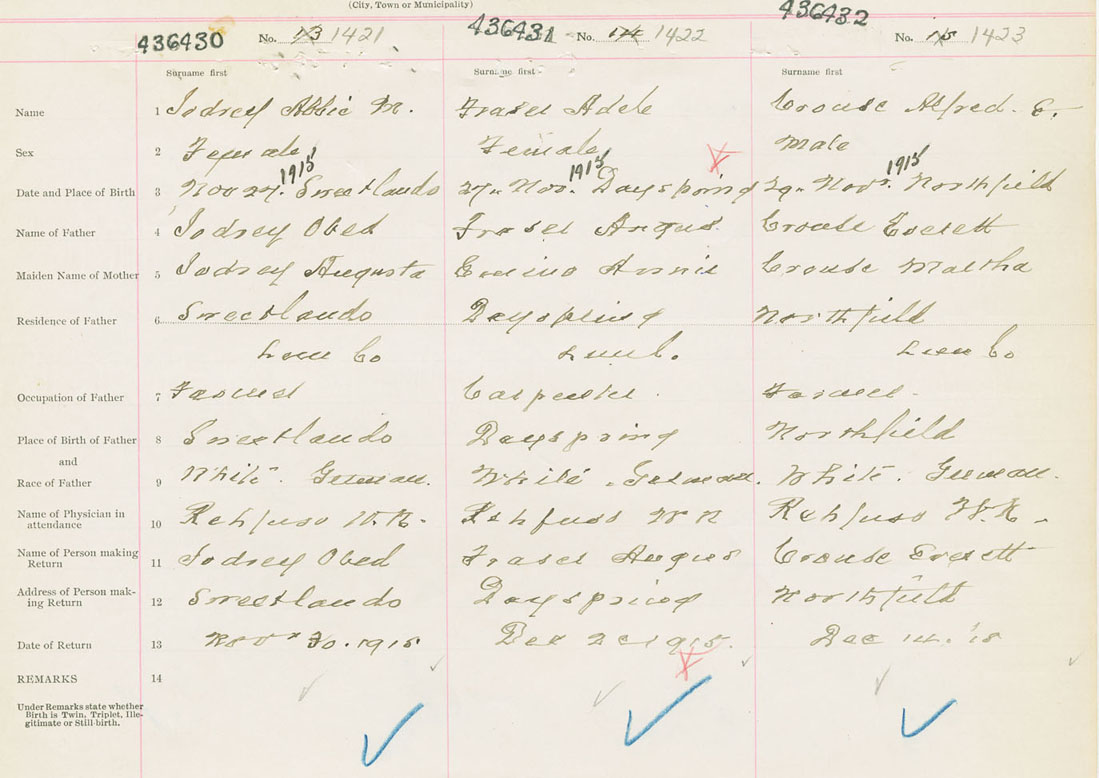 (City, Town or Municipality)
436430 No. 13 1421 436431 No. 14 1422 436432 No. 15 1423
Surname first Surname first Surname first
Name 1 Jodrey Abbie M. Fraser Adele Crouse Alfred. E.
Sex 2 Female Female Male
1915 1915 1915
Date and Place of Birth 3 Nov 27. Sweetlands 27. Nov. Dayspring 29. Nov. Northfield
Name of Father 4 Jodrey Obed Fraser Angus Crouse Everett
Maiden Name of Mother 5 Jodrey Augusta Annie Crouse Martha
Residence of Father 6 Sweetlands Dayspring Northfield
Lun Co Lun Co. Lun Co
Occupation of Father 7 Farmer Carpenter. Farmer.
Place of Birth of Father 8 Sweetlands Dayspring Northfield
and
Race of Father 9 White. German. White. German. White. German.
Name of Physician in
attendance 10 Rehfuss W.R. Rehfuss W R Rehfuss W.R.
Name of Person making
Return 11 Jodrey Obed Fraser Angus Crouse Everett
Address of Person mak-
ing Return 12 Sweetlands Dayspring Northfield
Date of Return 13 Nov 30. 1915 Dec 1915. Dec 14. '15
REMARKS 14
Under Remarks state whether
Birth is Twin, Triplet, Ille-
gitimate or Still-birth.